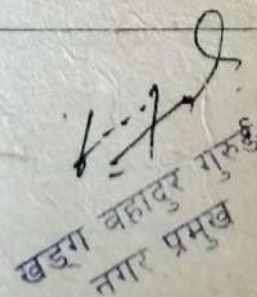 खड्ग वहादुर गुरुङ
नगर प्रमुख